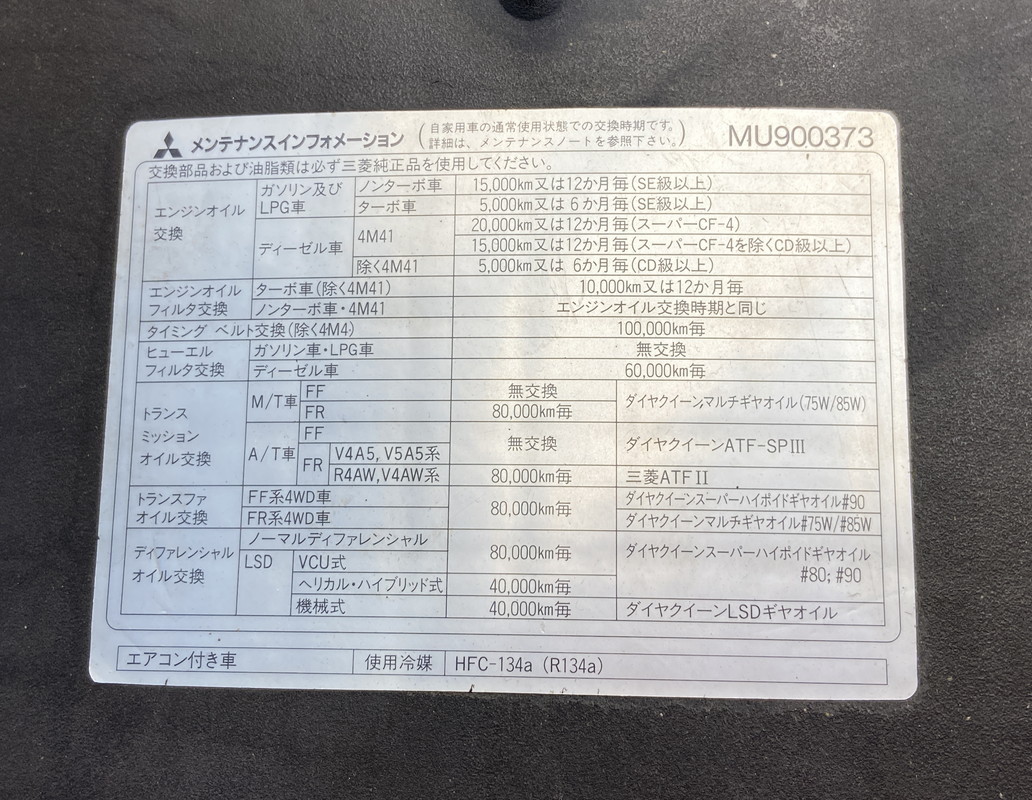 メンテナンスインフォメーション (自家用車の通常使用状態での交換時期です。 MU900373
詳細は、メンテナンスノートを参照下さい。)
交換部品および油脂類は必ず三菱純正品を使用してください。
エンジンオイル交換 ガソリン及びLPG車 ノンターボ車 15,000km又は12か月毎(SE級以上)
ターボ車 5,000km又は 6か月毎(SE級以上)
ディーゼル車 4M41 20,000km又は12か月毎(スーパーCF-4)
15,000km又は12か月毎(スーパーCF-4を除くCD級以上)
除く4M41 5,000km又は 6か月毎(CD級以上)
エンジンオイル ターボ車(除く4M41) 10,000km又は12か月毎
フィルタ交換 ノンターボ車・4M41 エンジンオイル交換時期と同じ
タイミング ベルト交換(除く4M4) 100,000km毎
ヒューエル ガソリン車・LPG車 無交換
フィルタ交換 ディーゼル車 60,000km毎
トランスミッションオイル交換 M/T車 FF 無交換 ダイヤクイーンマルチギヤオイル(75W/85W)
FR 80,000km毎
A/T車 FF 無交換 ダイヤクイーンATF-SPIII
FR V4A5, V5A5系
R4AW,V4AW系 80,000km毎 三菱ATFⅡ
トランスファ FF系4WD車 80,000km毎 ダイヤクイーンスーパーハイポイドギヤオイル#90
オイル交換 FR系4WD車 ダイヤクイーンマルチギヤオイル#75W/#85W
ディファレンシャルオイル交換 ノーマルディファレンシャル 80,000km毎 ダイヤクイーンスーパーハイポイドギヤオイル
#80; #90
LSD VCU式
ヘリカル・ハイブリッド式 40,000km毎
機械式 40,000km毎 ダイヤクイーンLSDギヤオイル
エアコン付き車 使用冷媒 HFC-134a (R134a)